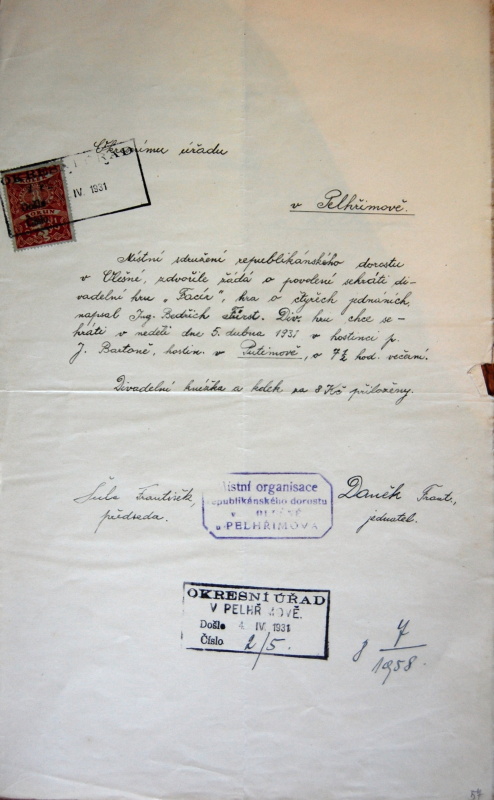 Okresnímu úřadu
IV. 1931
v Pelhřimově.
Místní sdružení republikánského dorostu
v Olešné, zdvořile žádá o povolení sehráti di-
vadelní hru „Facír", hra o čtyřech jednáních,
napsal Ing. Bedřich Fürst. Div. hru chce se-
hráti v neděli dne 5. dubna 1931 v hostinci p.
J. Bartoně, hostin. v Putimově, o 7½ hod. večerní.
Divadelní knížka a kolek za 8 Kč přiloženy.
Šula František,
předseda.
Místní organisace
republikánského dorostu
v OLEŠNÉ
u PELHŘIMOVA
Daněk Frant.,
jednatel.
OKRESNÍ ÚŘAD
V PELHŘIMOVĚ.
Došlo 4. IV. 1931
Číslo 2/5.
8 7/1958.
57